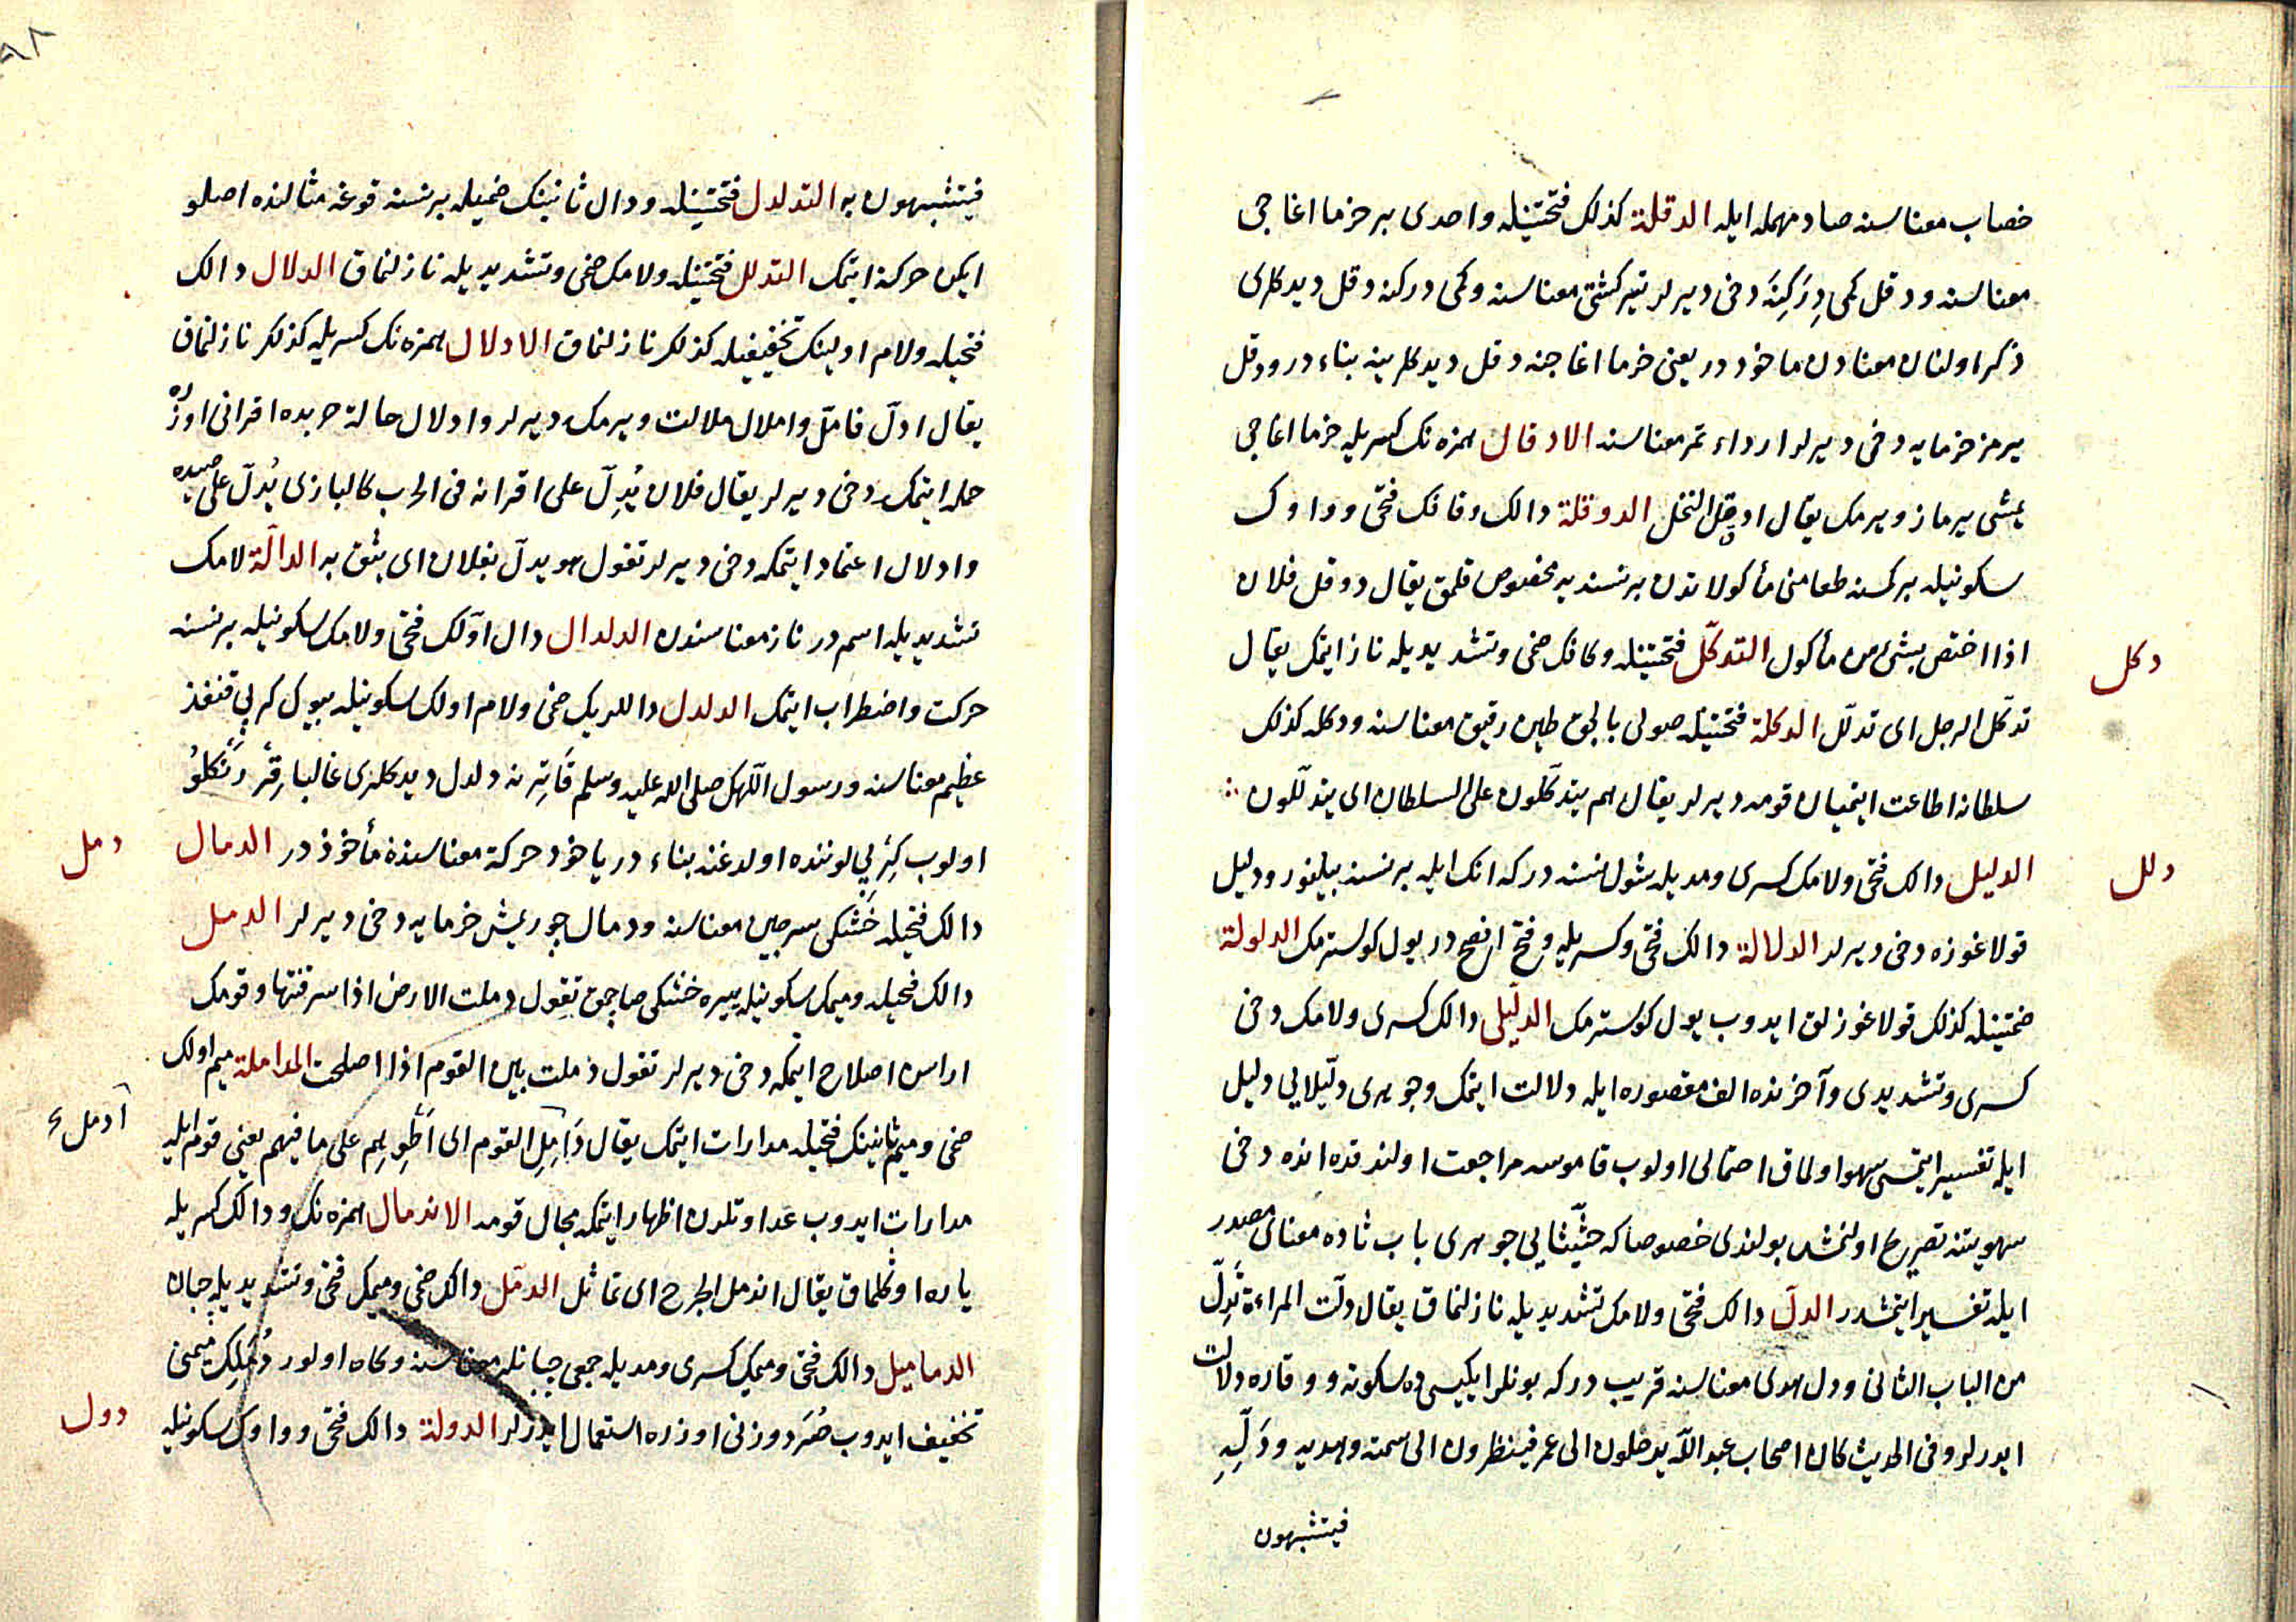 خصاب معناسنه صاد مهمله ايله الدقلة كذلك فتحتينله واحدى بر خرما اغاجى
معناسنه و دقل كمى دِرَكِنَه دخى ديرلر تير كشتى معناسنه و كمى دركنه دقل ديدكلرى
ذكر اولنان معنادن ماخوذ در يعنى خرما اغاجنه دقل ديدكلرينه بناء در و دقل
يرمز خرمايه دخى ديرلر ارداء تمر معناسنه الادقال همزه نك كسريله خرما اغاجى
يمشى يرماز ويرمك يقال ادقل النخل الدوقلة دالك و قافك فتحى و واوك
سكونيله بر كمسنه طعامنى مأكولاتدن بر نسنه يه مخصوص قلمق يقال دوقل فلان
اذا اختص بشئ من مأكول التدكّل فتحتينله و كافك ضمى و تشديديله ناز ايتمك يقال
دكل
تدكل الرجل اى تدلّل الدكلة فتحتينله صولى بالجق طين رقيق معناسنه و دكله كذلك
سلطانه اطاعت ايتميان قومه ديرلر يقال هم يتدكّلون على السلطان اى يتدلّلون
الدليل دالك فتحى و لامك كسرى و مديله شول نسنه در كه انك ايله بر نسنه بيلنور و دليل
دلل
قولاغوزه دخى ديرلر الدلالة دالك فتحى و كسريله و فتح افصح در يول كوسترمك الدلولة
ضمتينله كذلك قولاغوزلق ايدوب يول كوسترمك الدلّيلى دالك كسرى و لامك دخى
كسرى و تشديدى و آخرنده الف مقصوره ايله دلالت ايتمك و جوهرى دلّيلايى دليل
ايله تفسير ايتمسى سهو اولماق احتمالى اولوب قاموسه مراجعت اولندقده انده دخى
سهويتنه تصريح اولنمش بولندى خصوصا كه حثّيثايى جوهرى باب ثاده معناى مصدر
ايله تفسير ايتمشدر الدلّ دالك فتحى و لامك تشديديله نازلنماق يقال دلّت المراءة تدلّ
من الباب الثانى و دل هدى معناسنه قريب در كه بونلر ايكيسى ده سكونه و وقاره دلالت
ايدرلر و فى الحديث كان اصحاب عبد الله يدخلون الى عمر فينظرون الى سمته و هديه و دَلِّهِ
فيتشبهون
فيتشبهون به التدلدل فتحتينله و دال ثانينك ضميله بر نسنه قوغه مثالنده اصلو
ايكن حركة ايتمك التدلل فتحتينله و لامك ضمى و تشديديله نازلنماق الدلال دالك
فتحيله و لام اولينك تخفيفيله كذلك نازلنماق الادلال همزه نك كسريله كذلك نازلنماق
يقال ادلّ فاملّ و املال ملالت ويرمك ديرلر و ادلال حالة حربده اقرانى اوزره
حمله ايتمك دخى ديرلر يقال فلان يُدِلّ على اقرانه فى الحرب كالبازى يُدلّ على صيده
و ادلال اعتماد ايتمكه دخى ديرلر تقول هو يدلّ بفلان اى يثق به الدالّة لامك
تشديديله اسم در ناز معناسندن الدلدال دال اوّلك فتحى و لامك سكونيله بر نسنه
حركت و اضطراب ايتمك الدلدل داللريك ضمى و لام اولك سكونيله بيوك كرپى قنفذ
عظيم معناسنه و رسول اللهك صلى الله عليه و سلم قاترنه دلدل ديدكلرى غالبا رقّر رنكلو
اولوب كرپى لوننده اولدغنه بناء در يا خود حركة معناسنده مأخوذ در الدمال
دمل
دالك فتحيله خشكى سرجين معناسنه و دمال چوريمش خرمايه دخى ديرلر الدمل
دالك فتحيله و ميمك سكونيله ييره خشكى صاچمق تقول دملت الارض اذا سرقنتها و قومك
اراسن اصلاح ايتمكه دخى ديرلر تقول دملت بين القوم اذا اصلحت المداملة ميم اولك
ضمى و ميم ثانينك فتحيله مدارات ايتمك يقال دَامِلِ القوم اى اَطْوِهِم على ما فيهم يعنى قوم ايله
ادمل
مدارات ايدوب عداوتلرن اظهار ايتمكه مجال قومه الاندمال همزه نك و دالك كسريله
ياره اوكلماق يقال اندمل الجرح اى تماثل الدمّل دالك ضمى و ميمك فتحى و تشديديله چبان
الدماميل دالك فتحى و ميمك كسرى و مديله جمعى چبانلر معناسنه و كاه اولور دُمَّلِك ميمنى
تخفيف ايدوب صُرَد وزنى اوزره استعمال ايدرلر الدولة دالك فتحى و واوك سكونيله
دول